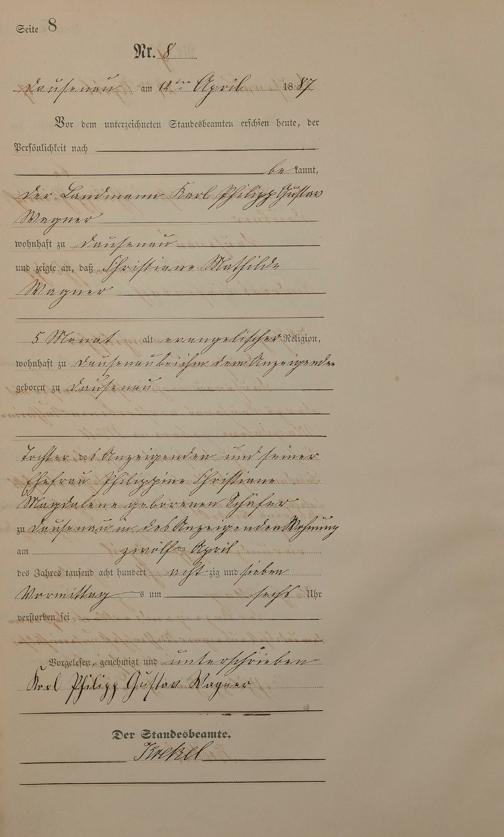 Seite 8
Nr. 8
Dausenau am 12ten April 1887
Vor dem unterzeichneten Standesbeamten erschien heute, der
Persönlichkeit nach
be kannt,
der Landmann Karl Philipp Gustav
Wagner
wohnhaft zu Dausenau
und zeigte an, daß Christiane Mathilde
Wagner
5 Monat alt evangelischer Religion,
wohnhaft zu Dausenau bei ihm dem Anzeigenden
geboren zu Dausenau
Tochter des Anzeigenden und seiner
Ehefrau Philippine Christiane
Magdalene geborenen Schäfer
zu Dausenau in des Anzeigenden Wohnung
am zwölften April
des Jahres tausend acht hundert achtzig und sieben
Vormittags um sechs Uhr
verstorben sei
Vorgelesen, genehmigt und unterschrieben
Karl Philipp Gustav Wagner
Der Standesbeamte.